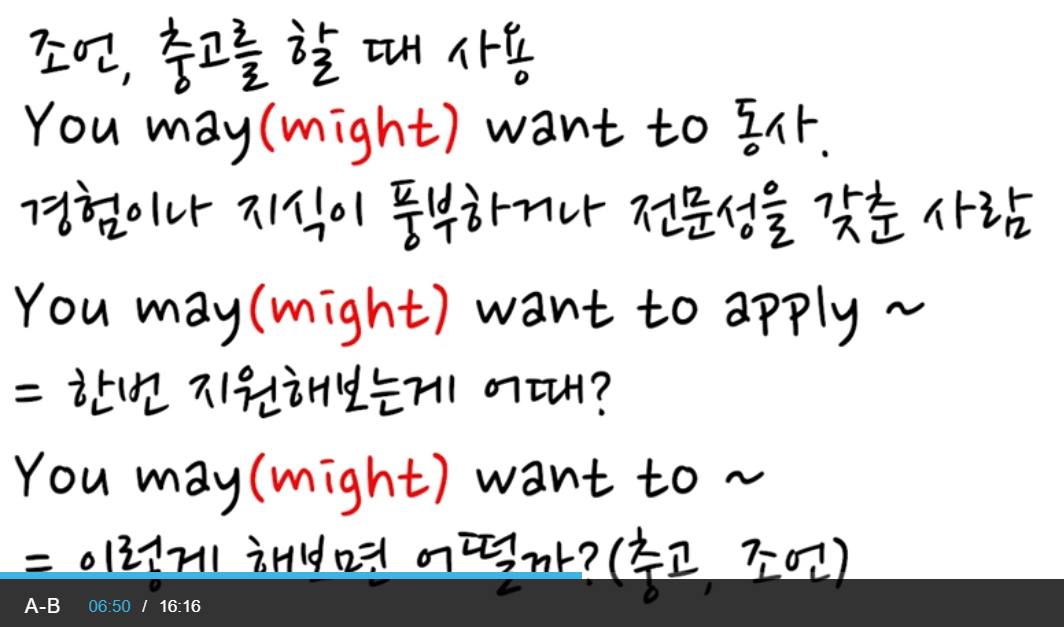 조언, 충고를 할 때 사용
You may(might) want to 동사.
경험이나 지식이 풍부하거나 전문성을 갖춘 사람
You may(might) want to apply ~
= 한번 지원해보는게 어때?
You may(might) want to ~
= 이렇게 해보면 어떨까?(충고, 조언)
A-B 06:50 / 16:16